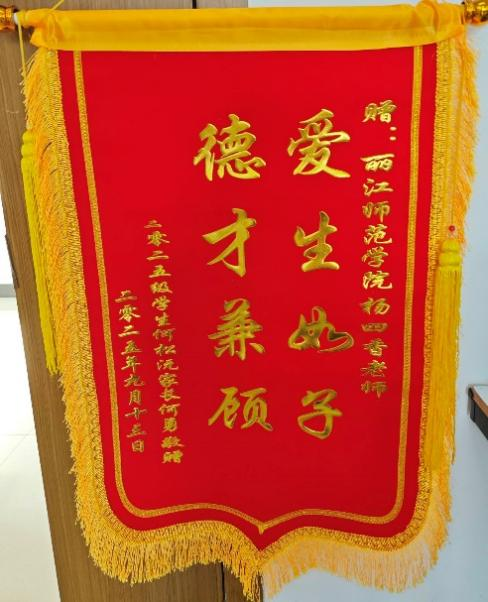 赠：丽江师范学院杨四香老师
爱生如子
德才兼顾
二零二五级学生何松沅家长何勇敬赠
二零二五年九月十五日